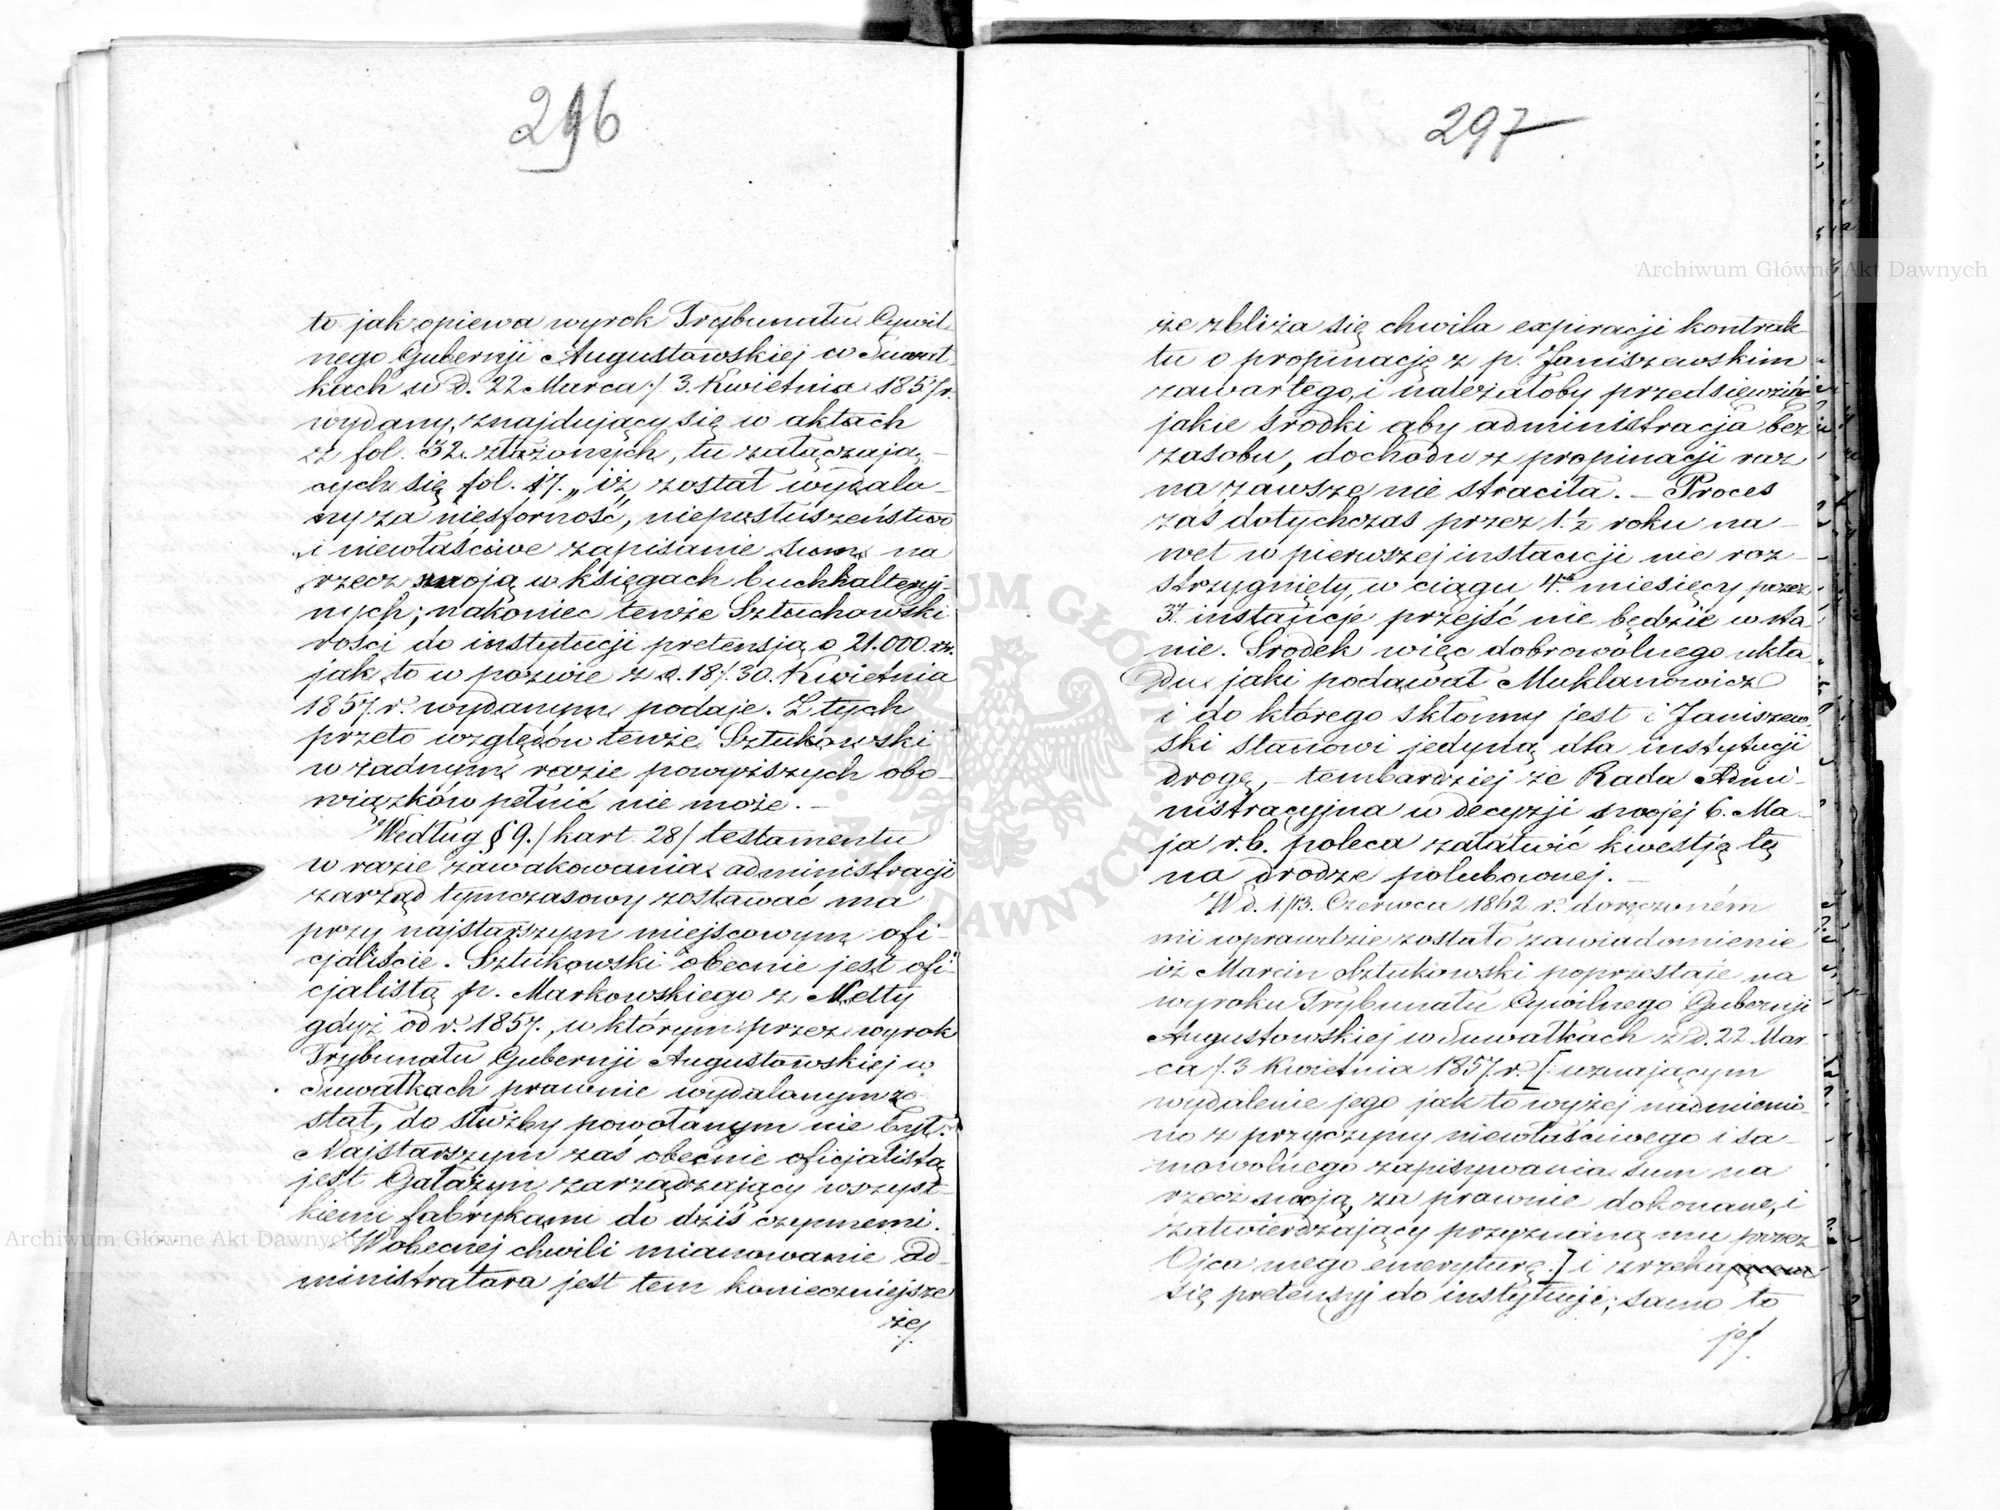 296
to jak opiewa wyrok Trybunału Cywil-
nego Gubernji Augustowskiej w Suwał-
kach w d. 22 Marca / 3. Kwietnia 1857 r.
wydany, znajdujący się w aktach
z fol. 32. złożonych, tu załączają-
cych się fol. 17. „iż„ został wydalo-
ny za niesforność, nieposłuszeństwo
„i niewłaściwe zapisanie sum na
„rzecz swoją w księgach buchhalteryj-
nych; nakoniec tenże Sztuchowski
rości do instytucji pretensją o 21.000. rs.
jak to w pozwie z d. 18/30. Kwietnia
1857. r. wydanym podaje. Z tych
przeto względów tenże Sztukowski
w żadnym razie powyższych obo-
wiązków pełnić nie może. —
Według § 9. / kart. 28 / testamentu
w razie zawakowania administracji
zarząd tymczasowy zostawać ma
przy najstarszym miejscowym ofi-
cjaliście. Sztukowski obecnie jest ofi-
cjalistą p. Markowskiego z Netty
gdyż od r. 1857., w którym przez wyrok
Trybunału Gubernji Augustowskiej w
Suwałkach prawnie wydalonym zo-
stał, do służby powołanym nie był.
Najstarszym zaś obecnie oficjalistą
jest Gałażyn zarządzający wszyst-
kiemi fabrykami do dziś czynnemi.
W obecnej chwili mianowanie ad-
ministratora jest tem konieczniejsze
że
297
że zbliża się chwila expiracji kontrak-
tu o propinację z p. Janiszewskim
zawartego, i należałoby przedsięwziąć
jakie środki aby administracja bez
zasobu, dochodu z propinacji raz
na zawsze nie straciła. — Proces
zaś dotychczas przez 1 1/2 roku na-
wet w pierwszej instancji nie roz-
strzygnięty, w ciągu 4ch miesięcy przez
3y instancje przejść nie będzie w sta-
nie. Środek więc dobrowolnego ukła-
du jaki podawał Muklanowicz
i do którego skłonny jest i Janiszew-
ski stanowi jedyną dla instytucji
drogę, — tembardziej że Rada Admi-
nistracyjna w decyzji swojej 6. Ma-
ja r. b. poleca załatwić kwestją tę
na drodze polubownej. —
W d. 1/13. Czerwca 1862 r. doręczoném
mi wprawdzie zostało zawiadomienie
iż Marcin Sztukowski poprzestaje na
wyroku Trybunału Cywilnego Gubernji
Augustowskiej w Suwałkach z d. 22 Mar-
ca / 3 Kwietnia 1857 r. [: uznającym
wydalenie jego jak to wyżej nadmienio-
no z przyczyny niewłaściwego i sa-
mowolnego zapisywania sum na
rzecz swoją, za prawnie dokonane, i
zatwierdzający przyznaną mu przez
Ojca mego emeryturę.] i zrzeka
się pretensyj do instytucji; samo to
jes
Archiwum Główne Akt Dawnych
Archiwum Główne Akt Dawnych